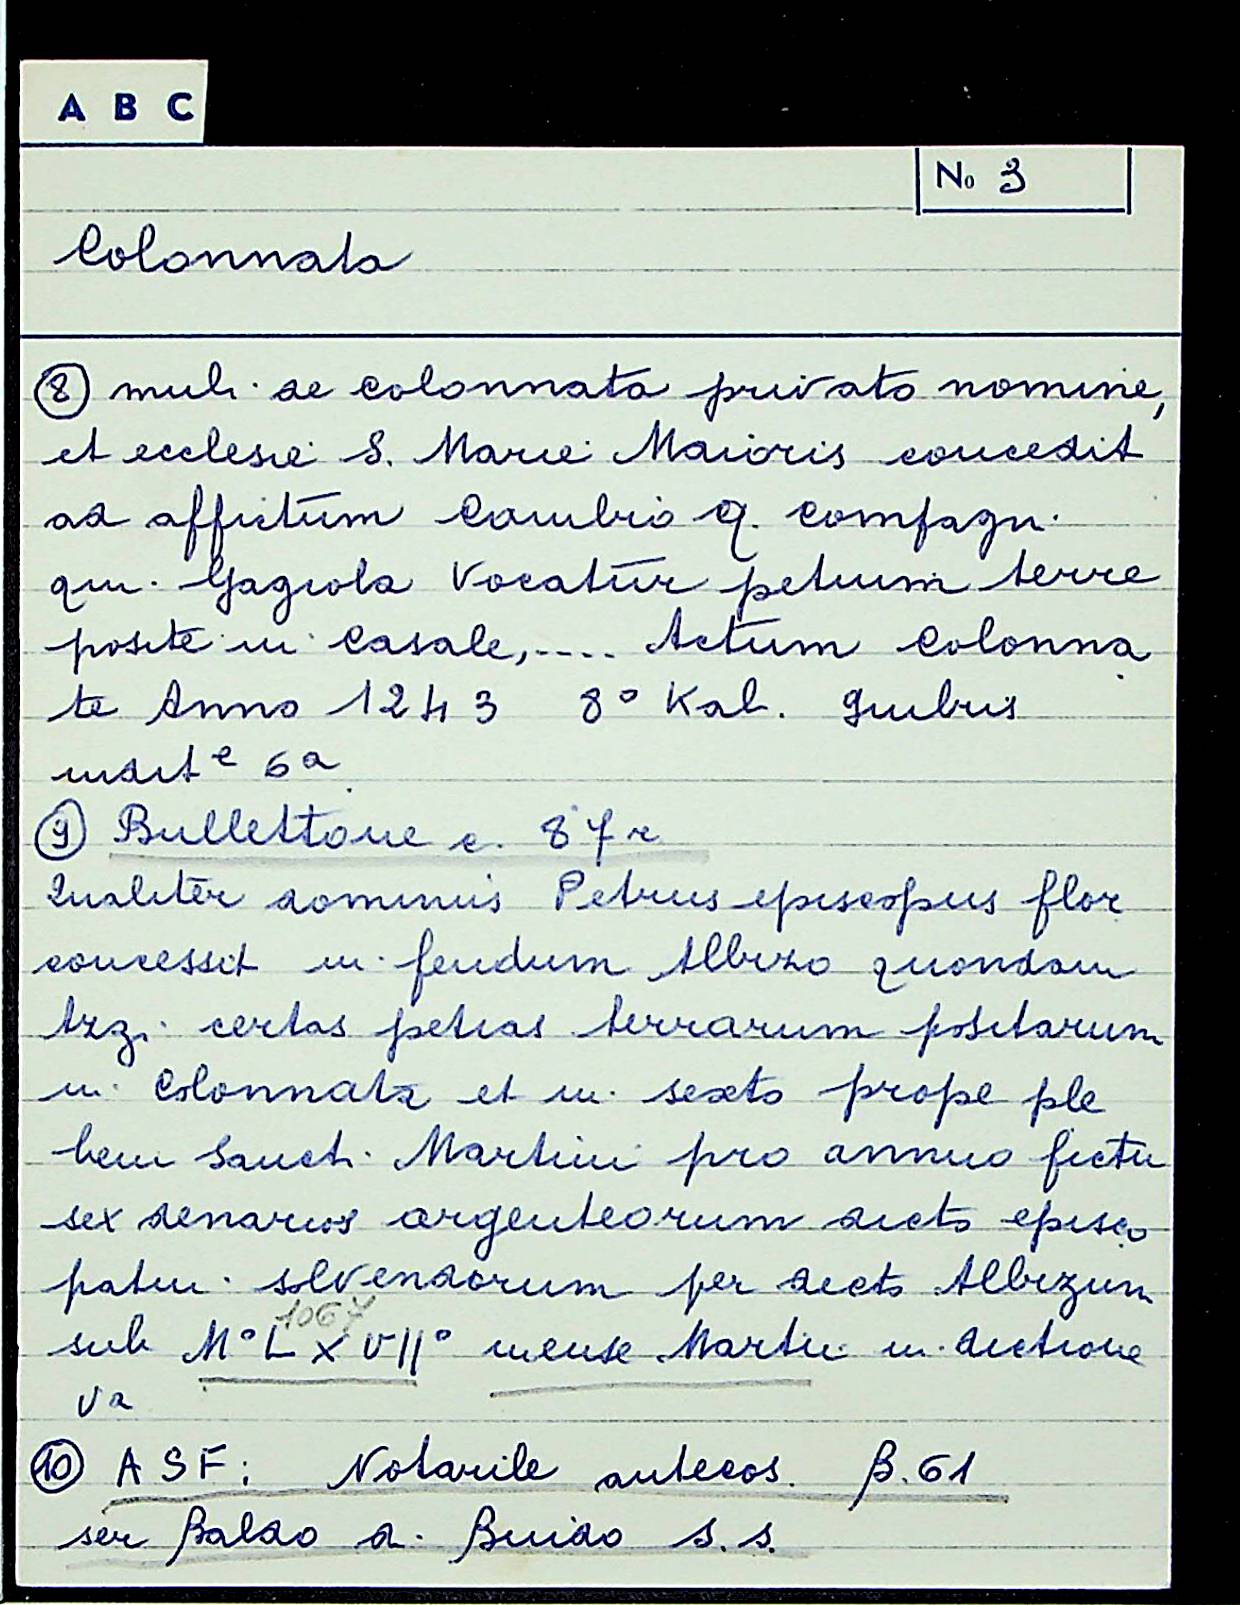 A B C
No 3
Colonnata
8 muli. de colonnata privato nomine,
et ecclesie S. Marie Maioris concedit
ad affictum Cambio q. compagn.
qui. Gagiola Vocatur petium terre
posite in Casale,.... Actum Colonna
te Anno 1243 8° Kal.
indit e 6a
9 Bullettone c. 87r
Qualiter dominus Petrus episcopus flor
concessit in feudum Albizo quondam
certas petias terrarum positarum
in Colonnata et in sexto prope ple
bem Sancti. Martini pro annuo fictu
sex denarios argenteorum dicto episco
patui. solvendorum per dicto Albizum
1067
sub M°LXVII° mense Martii indictione
Va
10 ASF: Notarile antecos. B.61
ser Baldo d. Buido s.s.